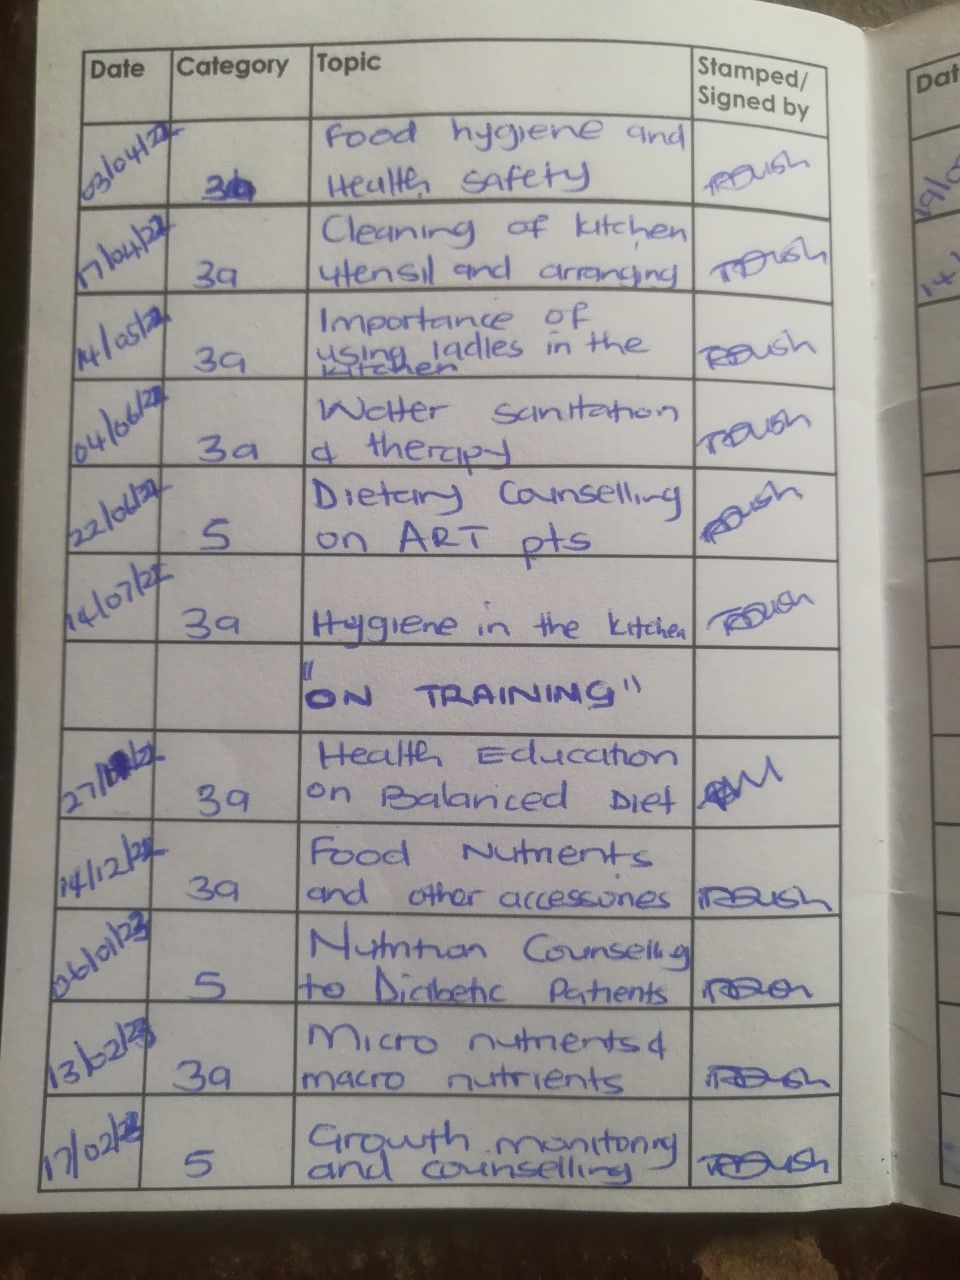 Date Category Topic Stamped/
Signed by
03/04/22 Food hygiene and
Health safety
17/04/22 3a Cleaning of kitchen
utensil and arranging
14/05/22 3a Importance of
using ladles in the
kitchen
04/06/22 3a Water sanitation
& therapy
22/06/22 5 Dietary Counselling
on ART pts
14/07/22 3a Hygiene in the kitchen
"ON TRAINING"
3a Health Education
on Balanced Diet
14/12/22 3a Food Nutrients
and other accessories
06/01/23 5 Nutrition Counsellig
to Diabetic Patients
13/02/23 3a Micro nutrients &
macro nutrients
17/02/23 5 Growth monitoring
and counselling
Dat